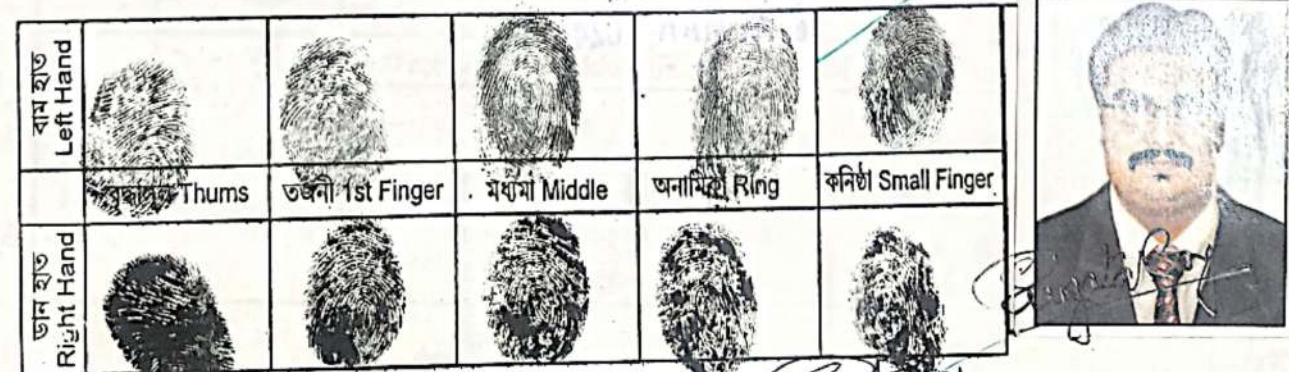 বাম হাত
Left Hand
Thums
তর্জনী 1st Finger
মধ্যমা Middle
অনামিকা Ring
কনিষ্ঠা Small Finger
ডান হাত
Right Hand